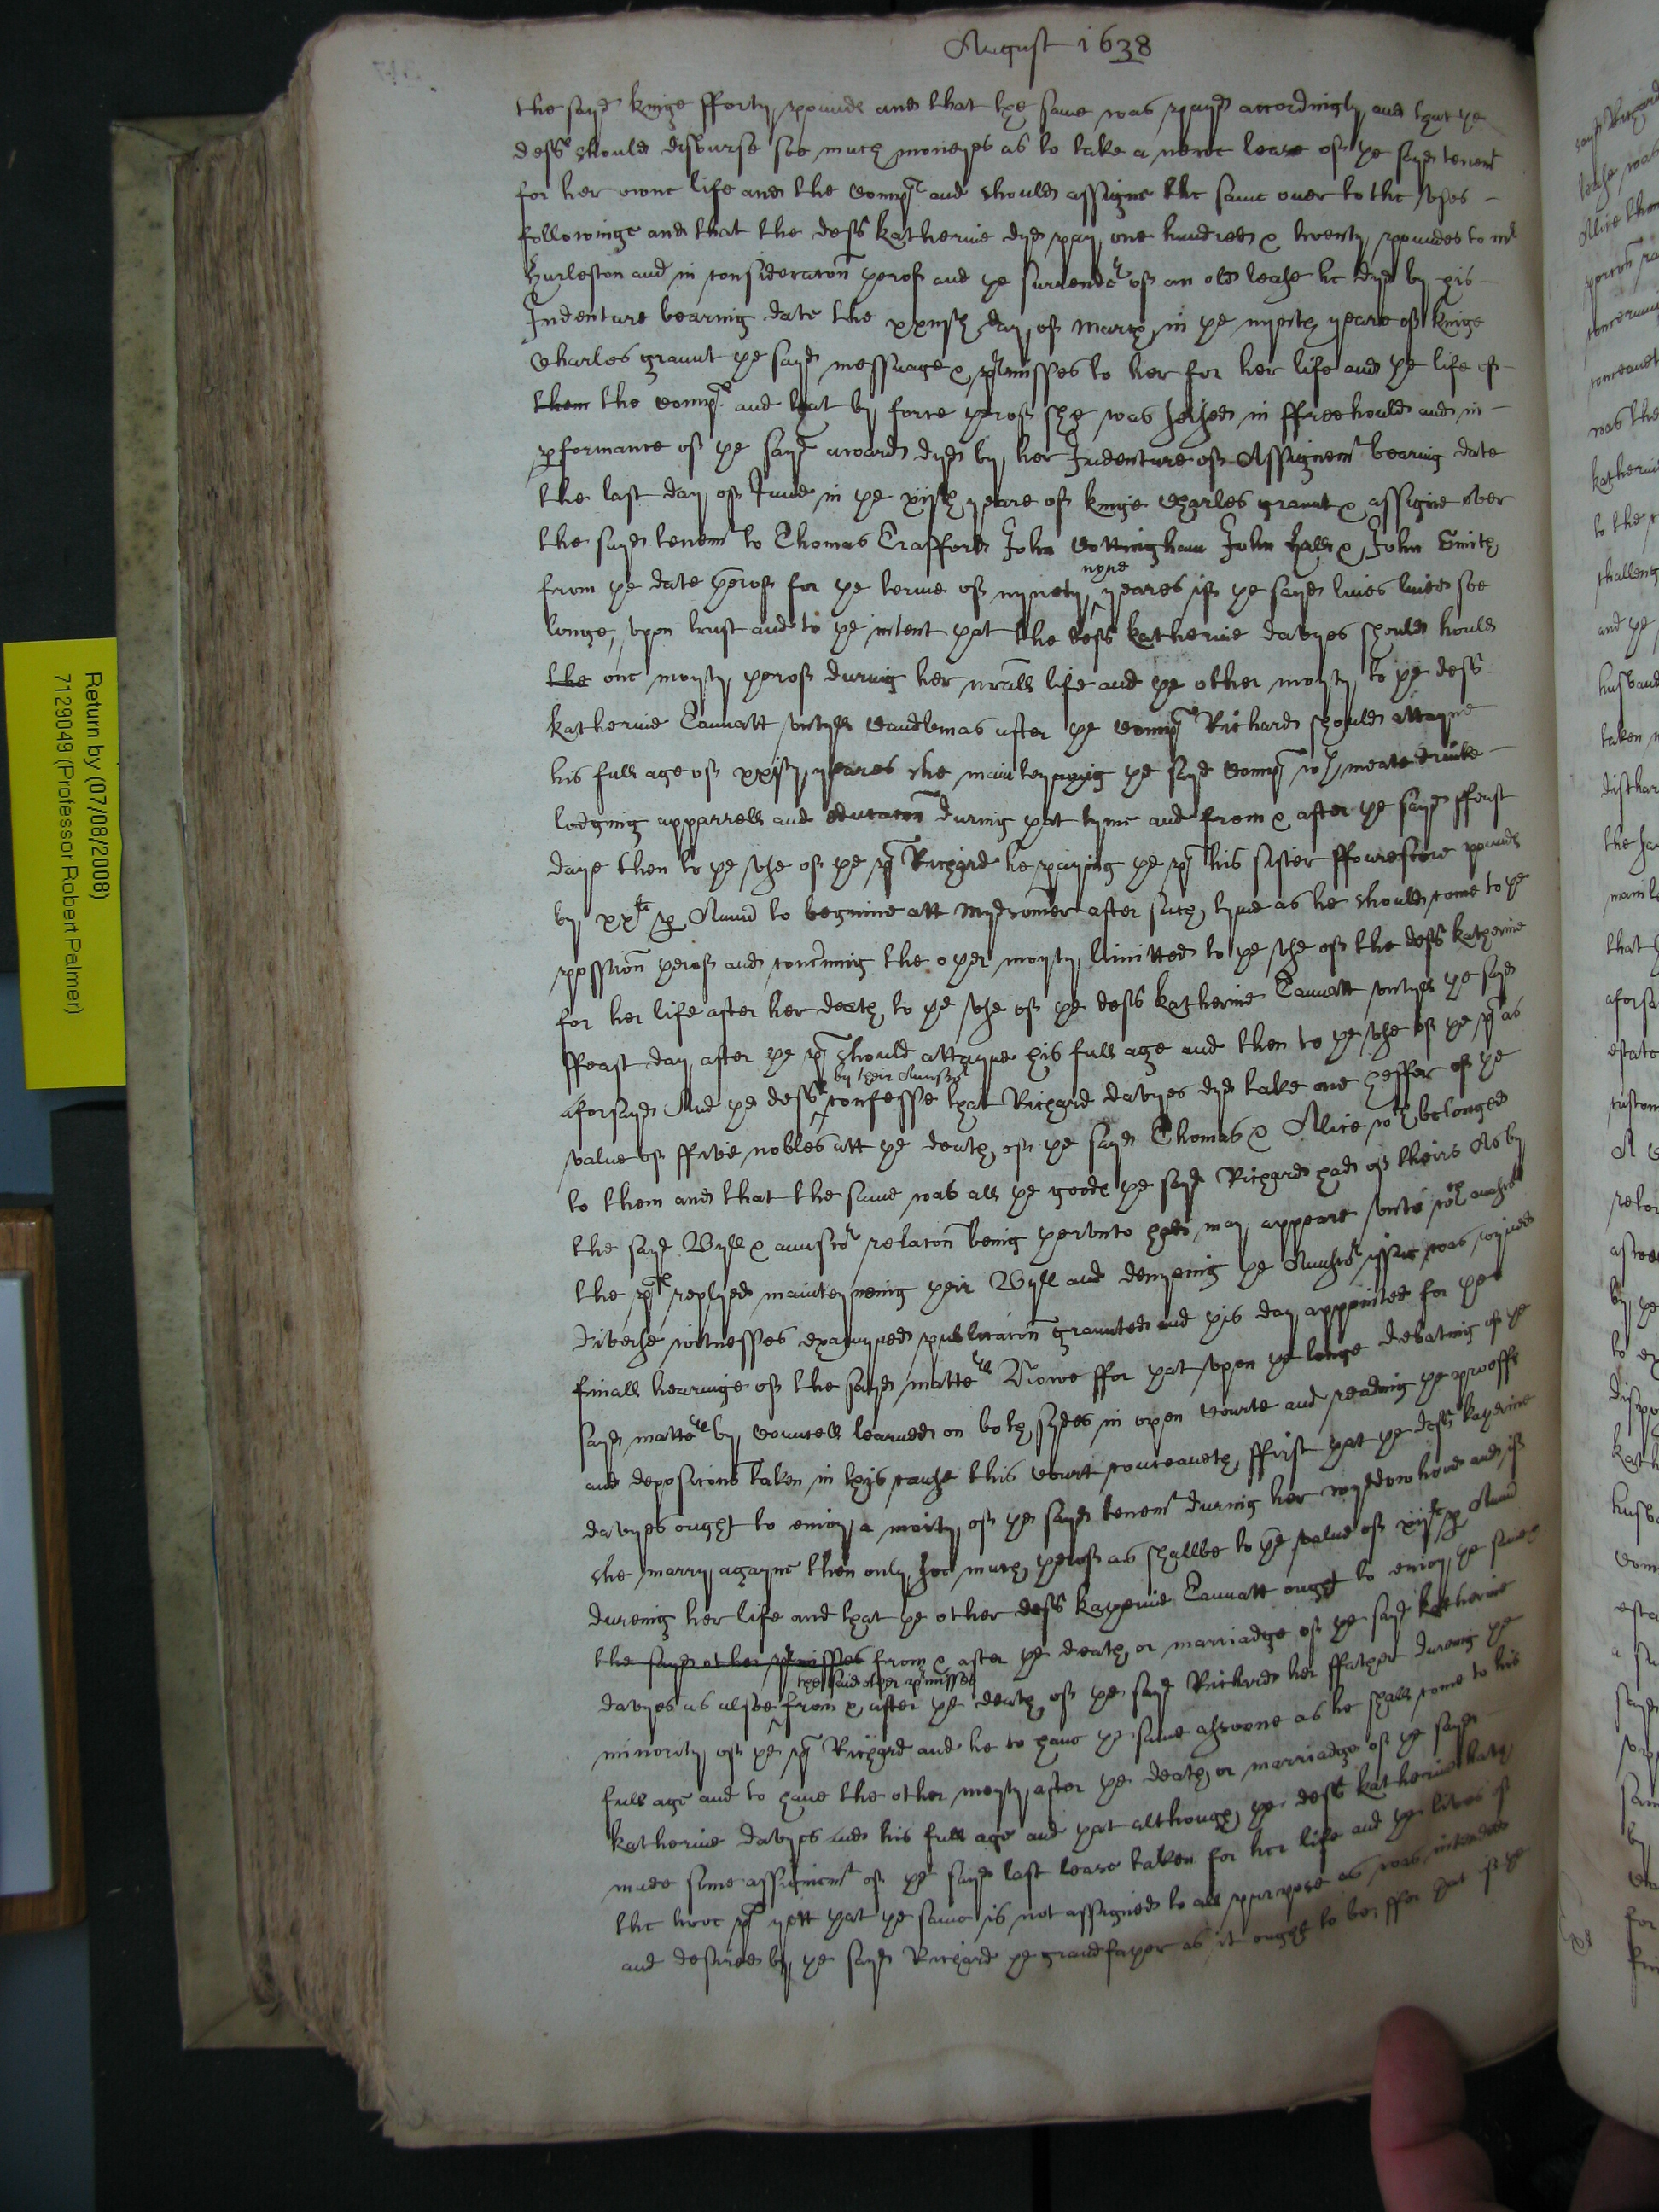 August 1638
the sayd kinge fforty pounde and that the same was payd accordingly and that ye
defts should disburse soe much moneyes as to take a newe lease of ye sayd tenemt
for her owne life and the Complts and should assigne the same over to the uses
followinge and that the deft Katherine dyd pay one hundred & twenty poundes to mr
Hurleston and in consideracon yerof and ye surrender of an old lease he dyd by his
Indenture bearing date the day of March in ye nynth yeare of kinge
Charles graunt ye sayd messuage & pmisses to her for her life and ye life of
them the Complts and that by force yerof she was seised in ffreehould and in
pformance of ye sayd award dyd by her Indenture of Assignemt bearing date
the last day of June in ye yeare of kinge Charles graunt & assigne over
the sayd tenemt to Thomas Trafford John Cottingham John Hall & John Smith
from ye date yerof for ye terme of nynety nyne yeares if ye sayd lives lived soe
longe, upon trust and to ye intent yat the deft Katherine Davyes should hould
the one moyty yerof during her nrall life and ye other moyty to ye deft
Katherine Cannatt untyll Candlemas after ye Complt Richard should attayne
his full age of xxjty yeares she mainteynying ye sayd Complt wth meate drinke
lodging apparrell and educacon during yat tyme and from & after ye sayd ffeast
daye then to ye use of ye plt Richard he paying ye plt his sister ffourescore pounde
by xxli p Annu to beginne att Mydsomer after such tyme as he should come to ye
possion yerof and concning the oyer moyty limitted to ye use of the deft Katherine
for her life after her death to ye use of ye deft Katherine Cannatt untyll ye sayd
ffeast day after ye plt should attayne his full age and then to ye use of ye plt as
aforsayd And ye defts by their Answer confesse that Richard Davyes dyd take one heffer of ye
value of ffive nobles att ye death of ye sayd Thomas & Alice wch belonged
to them and that the same was all ye goode ye sayd Richard had of theirs As by
the sayd Byll & answer relacon being yerunto had may appeare unto wch answer
the plts replyed mainteyneing yeir Byll and denyeing ye Answer issue was joyned
diverse witnesses examyned publicacon graunted and this day appointed for ye
finall hearinge of the sayd matters Nowe ffor yat upon ye longe debating of ye
sayd matters by Councell learned on both sydes in open Courte and reading ye prooffs
and deposicons taken in this cause this Court conceaveth ffirst yat ye deft Katherine
Davyes ought to enioy a moity of ye sayd tenemt during her wyddowhood and if
she marry agayne then only soe much yerof as shallbe to ye value of p Annu
dureing her life and that ye other deft Katherine Cannatt ought to enioy ye same
the sayd other pmisses from & after ye death or marriadge of ye sayd Katherine
Davyes as alsoe the said other pmisses from & after ye death of ye sayd Richard her ffather dureing ye
minority of ye plt Richard and he to have ye same assoone as he shall come to his
full age and to have the other moyty after ye death or marriadge of ye sayd
Katherine Davyes and his full age and yat although ye deft Katherine hath
made some assignemt of ye sayd last lease taken for her life and ye lives of
the twoe plts yett yat ye same is not assigned to all purpose as was intended
and desired by ye sayd Richard ye grandfayer as it ought to be, ffor yat if ye
Return by (07/08/2008)
7129049 (Professor Robert Palmer)